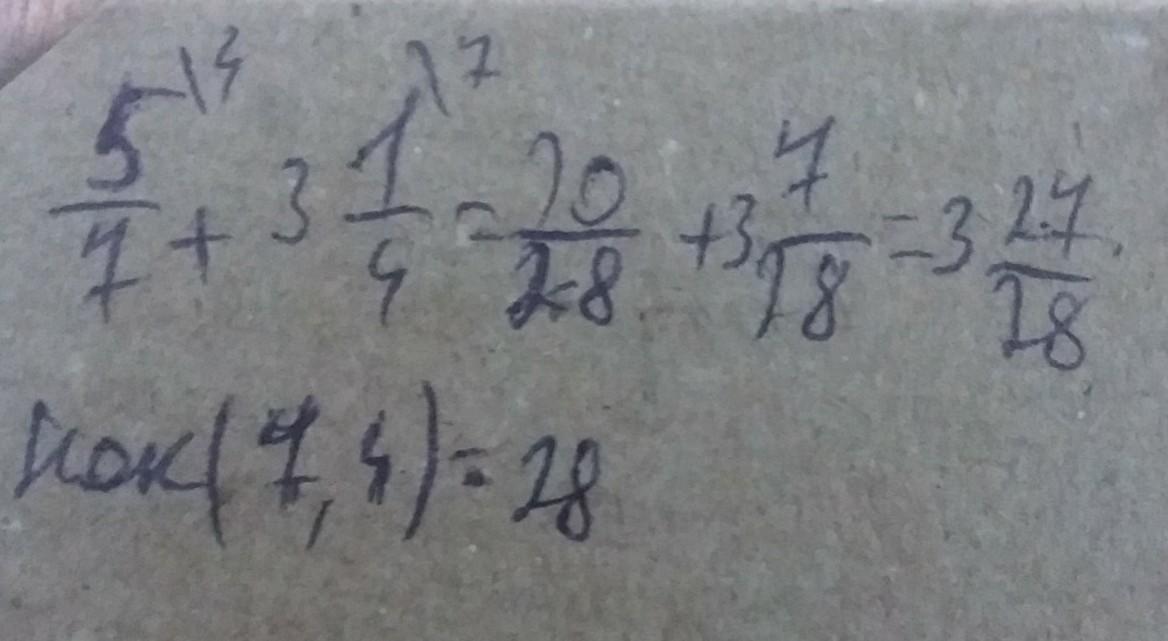 5/7 \4 + 3 1/4 \7 = 20/28 + 3 7/28 = 3 27/28
НОК(7,4)=28